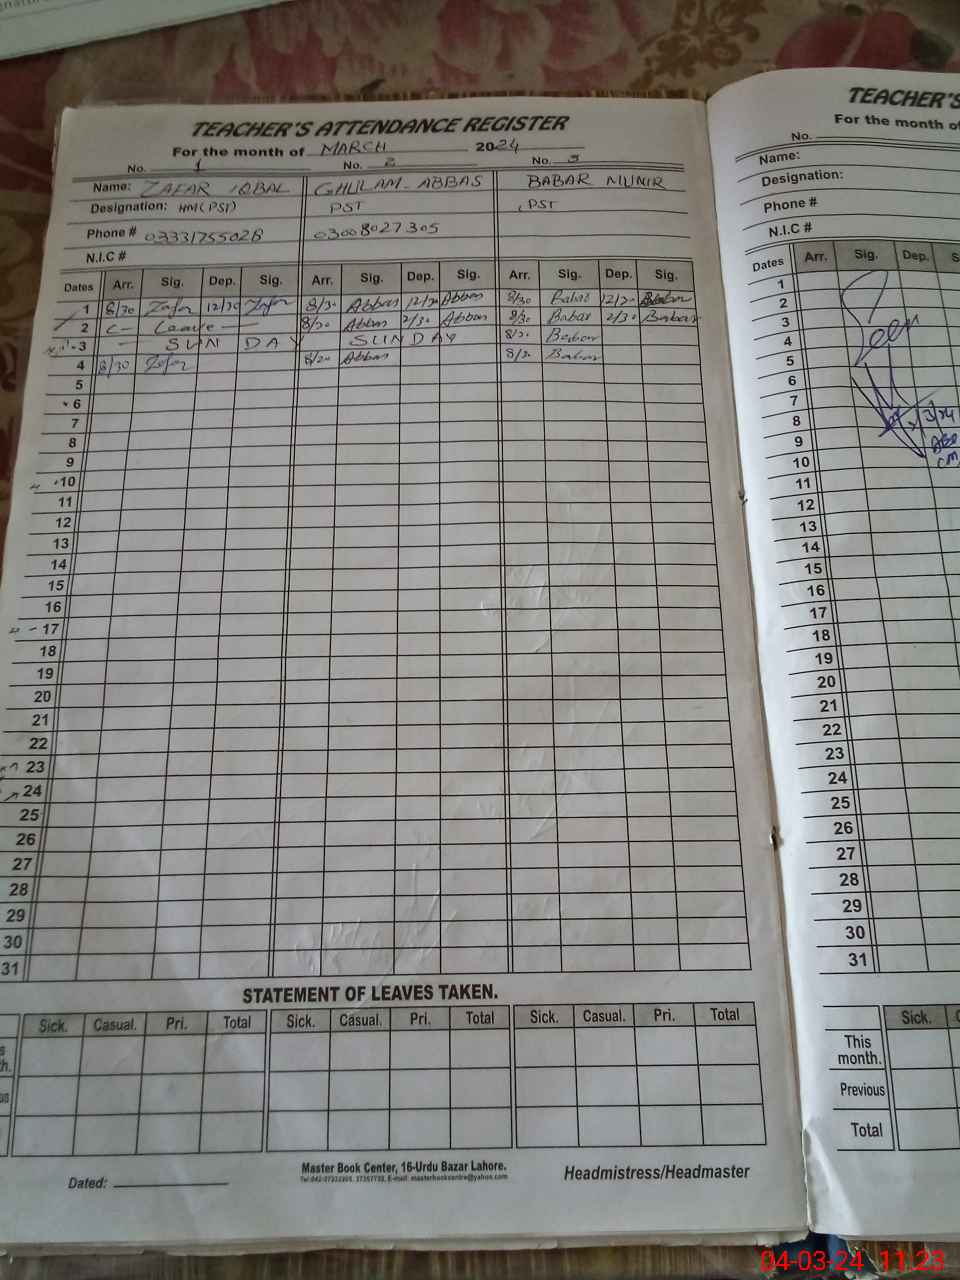 TEACHER'S ATTENDANCE REGISTER
For the month of MARCH 2024
No. 1 No. 2 No. 3
Name: ZAFAR IQBAL GHULAM ABBAS BABAR MUNIR
Designation: HM(PST) PST PST
Phone # 03331755028 03008027305
N.I.C #
Dates Arr. Sig. Dep. Sig. Arr. Sig. Dep. Sig. Arr. Sig. Dep. Sig.
1 8/30 Zafar 12/30 Zafar 8/30 Abbas 12/30 Abbas 8/30 Babar 12/30 Babar
2 C- Leave - 8/30 Abbas 2/30 Abbas 8/30 Babar 2/30 Babar
3 - SUN DAY SUNDAY 8/30 Babar
4 8/30 Zafar 8/30 Abbas 8/30 Babar
5
6
7
8
9
10
11
12
13
14
15
16
17
18
19
20
21
22
23
24
25
26
27
28
29
30
31
STATEMENT OF LEAVES TAKEN.
Sick. Casual. Pri. Total Sick. Casual. Pri. Total Sick. Casual. Pri. Total
Dated:
Master Book Center, 16-Urdu Bazar Lahore.
Headmistress/Headmaster
TEACHER'S
For the month of
No.
Name:
Designation:
Phone #
N.I.C #
Dates Arr. Sig. Dep.
1
2
3
4
5
6
7
8
9
10
11
12
13
14
15
16
17
18
19
20
21
22
23
24
25
26
27
28
29
30
31
Sick.
This
month.
Previous
Total
04-03-24 11:23